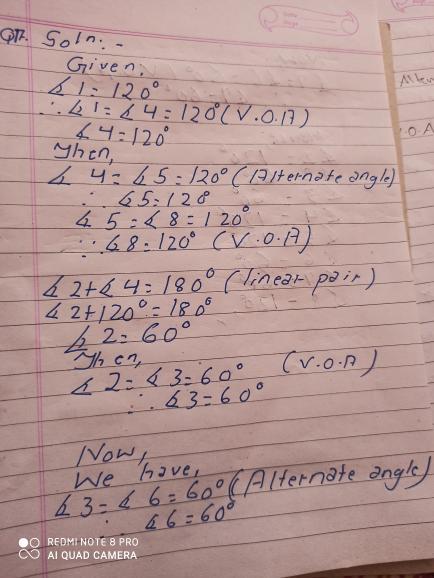 Q17. Soln:-
Given,
∡1=120°
∴ ∡1=∡4=120°(V.O.A)
∡4=120°
Then,
∡4=∡5=120°(Alternate angle)
∴ ∡5=120
∡5=∡8=120°
∴ ∡8=120° (V.O.A)
∡2+∡4=180° (linear pair)
∡2+120°=180°
∡2=60°
Then,
∡2=∡3=60° (V.O.A)
∴ ∡3=60°
Now,
We have,
∡3=∡6=60°(Alternate angle)
∴ ∡6=60°
REDMI NOTE 8 PRO
AI QUAD CAMERA